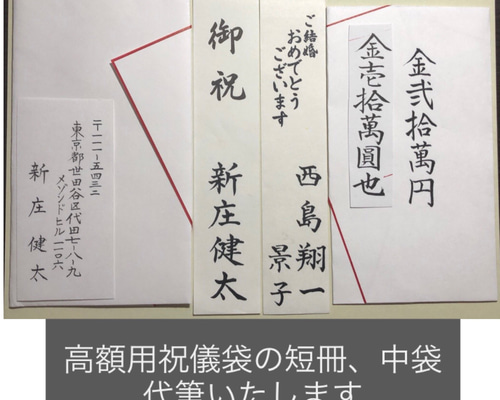 金弐拾萬円
金壱拾萬圓也
ご結婚
おめでとう
ございます
西島翔一
景子
御祝 新庄健太
〒一一一-五四三二
東京都世田谷区代田七-八-九
メゾンドヒル一〇六
新庄健太
高額用祝儀袋の短冊、中袋
代筆いたします